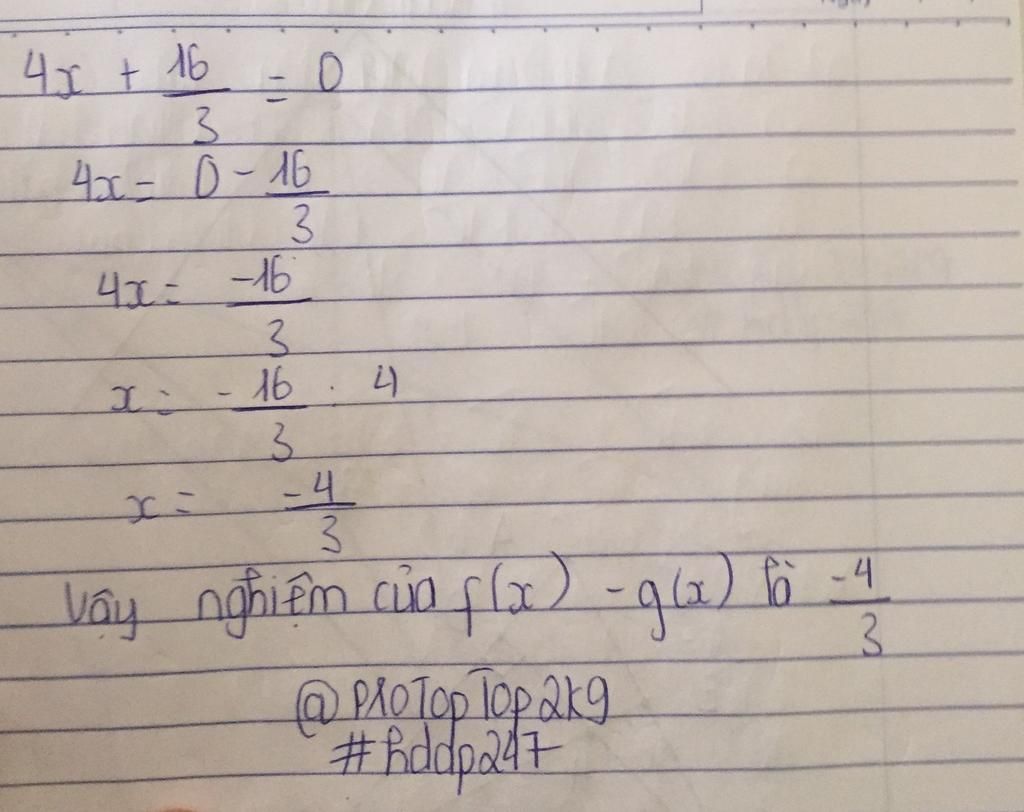 4x + 16/3 = 0
4x = 0 - 16/3
4x = -16/3
x = -16/3 : 4
x = -4/3
Vậy nghiệm của f(x) - g(x) là -4/3
@ProTopTop2k9
#hddp247